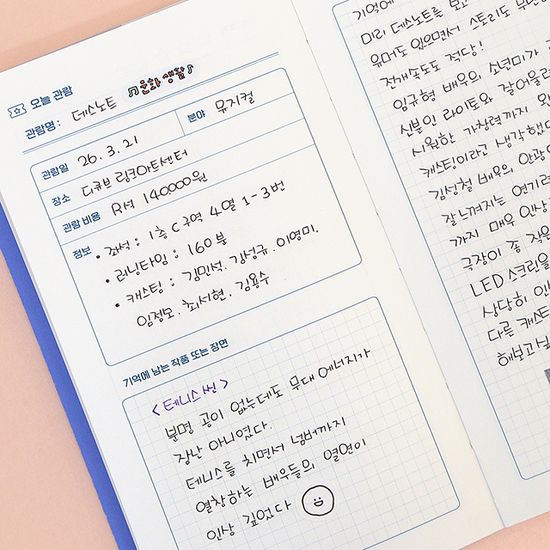 오늘 관람
관람명 : 데스노트 문화생활
관람일 26. 3. 21 분야 뮤지컬
장소 디큐브 링크아트센터
관람 비용 R석 140,000원
정보 • 좌석 : 1층 C구역 4열 1-3번
• 러닝타임 : 160분
• 캐스팅 : 김민석. 김성규. 이영미.
임정모. 최서현. 김용수
기억에 남는 작품 또는 장면
<테니스씬>
분명 공이 없는데도 무대 에너지가
장난 아니였다.
테니스를 치면서 넘버까지
열창하는 배우들의 열연이
인상 깊었다
기억에
미리 데스노트를 보고
유머도 있으면서 스토리도
전개속도도 적당!
임규형 배우의 소년미가
신분인 라이토와 잘어울
시원한 가창력까지
캐스팅이라고 생각했
김성철 배우의
잘느껴지는 연기
까지 매우 인상
극장이 좀 작
LED 스크린을
상당히 인
다른 캐스
해보고